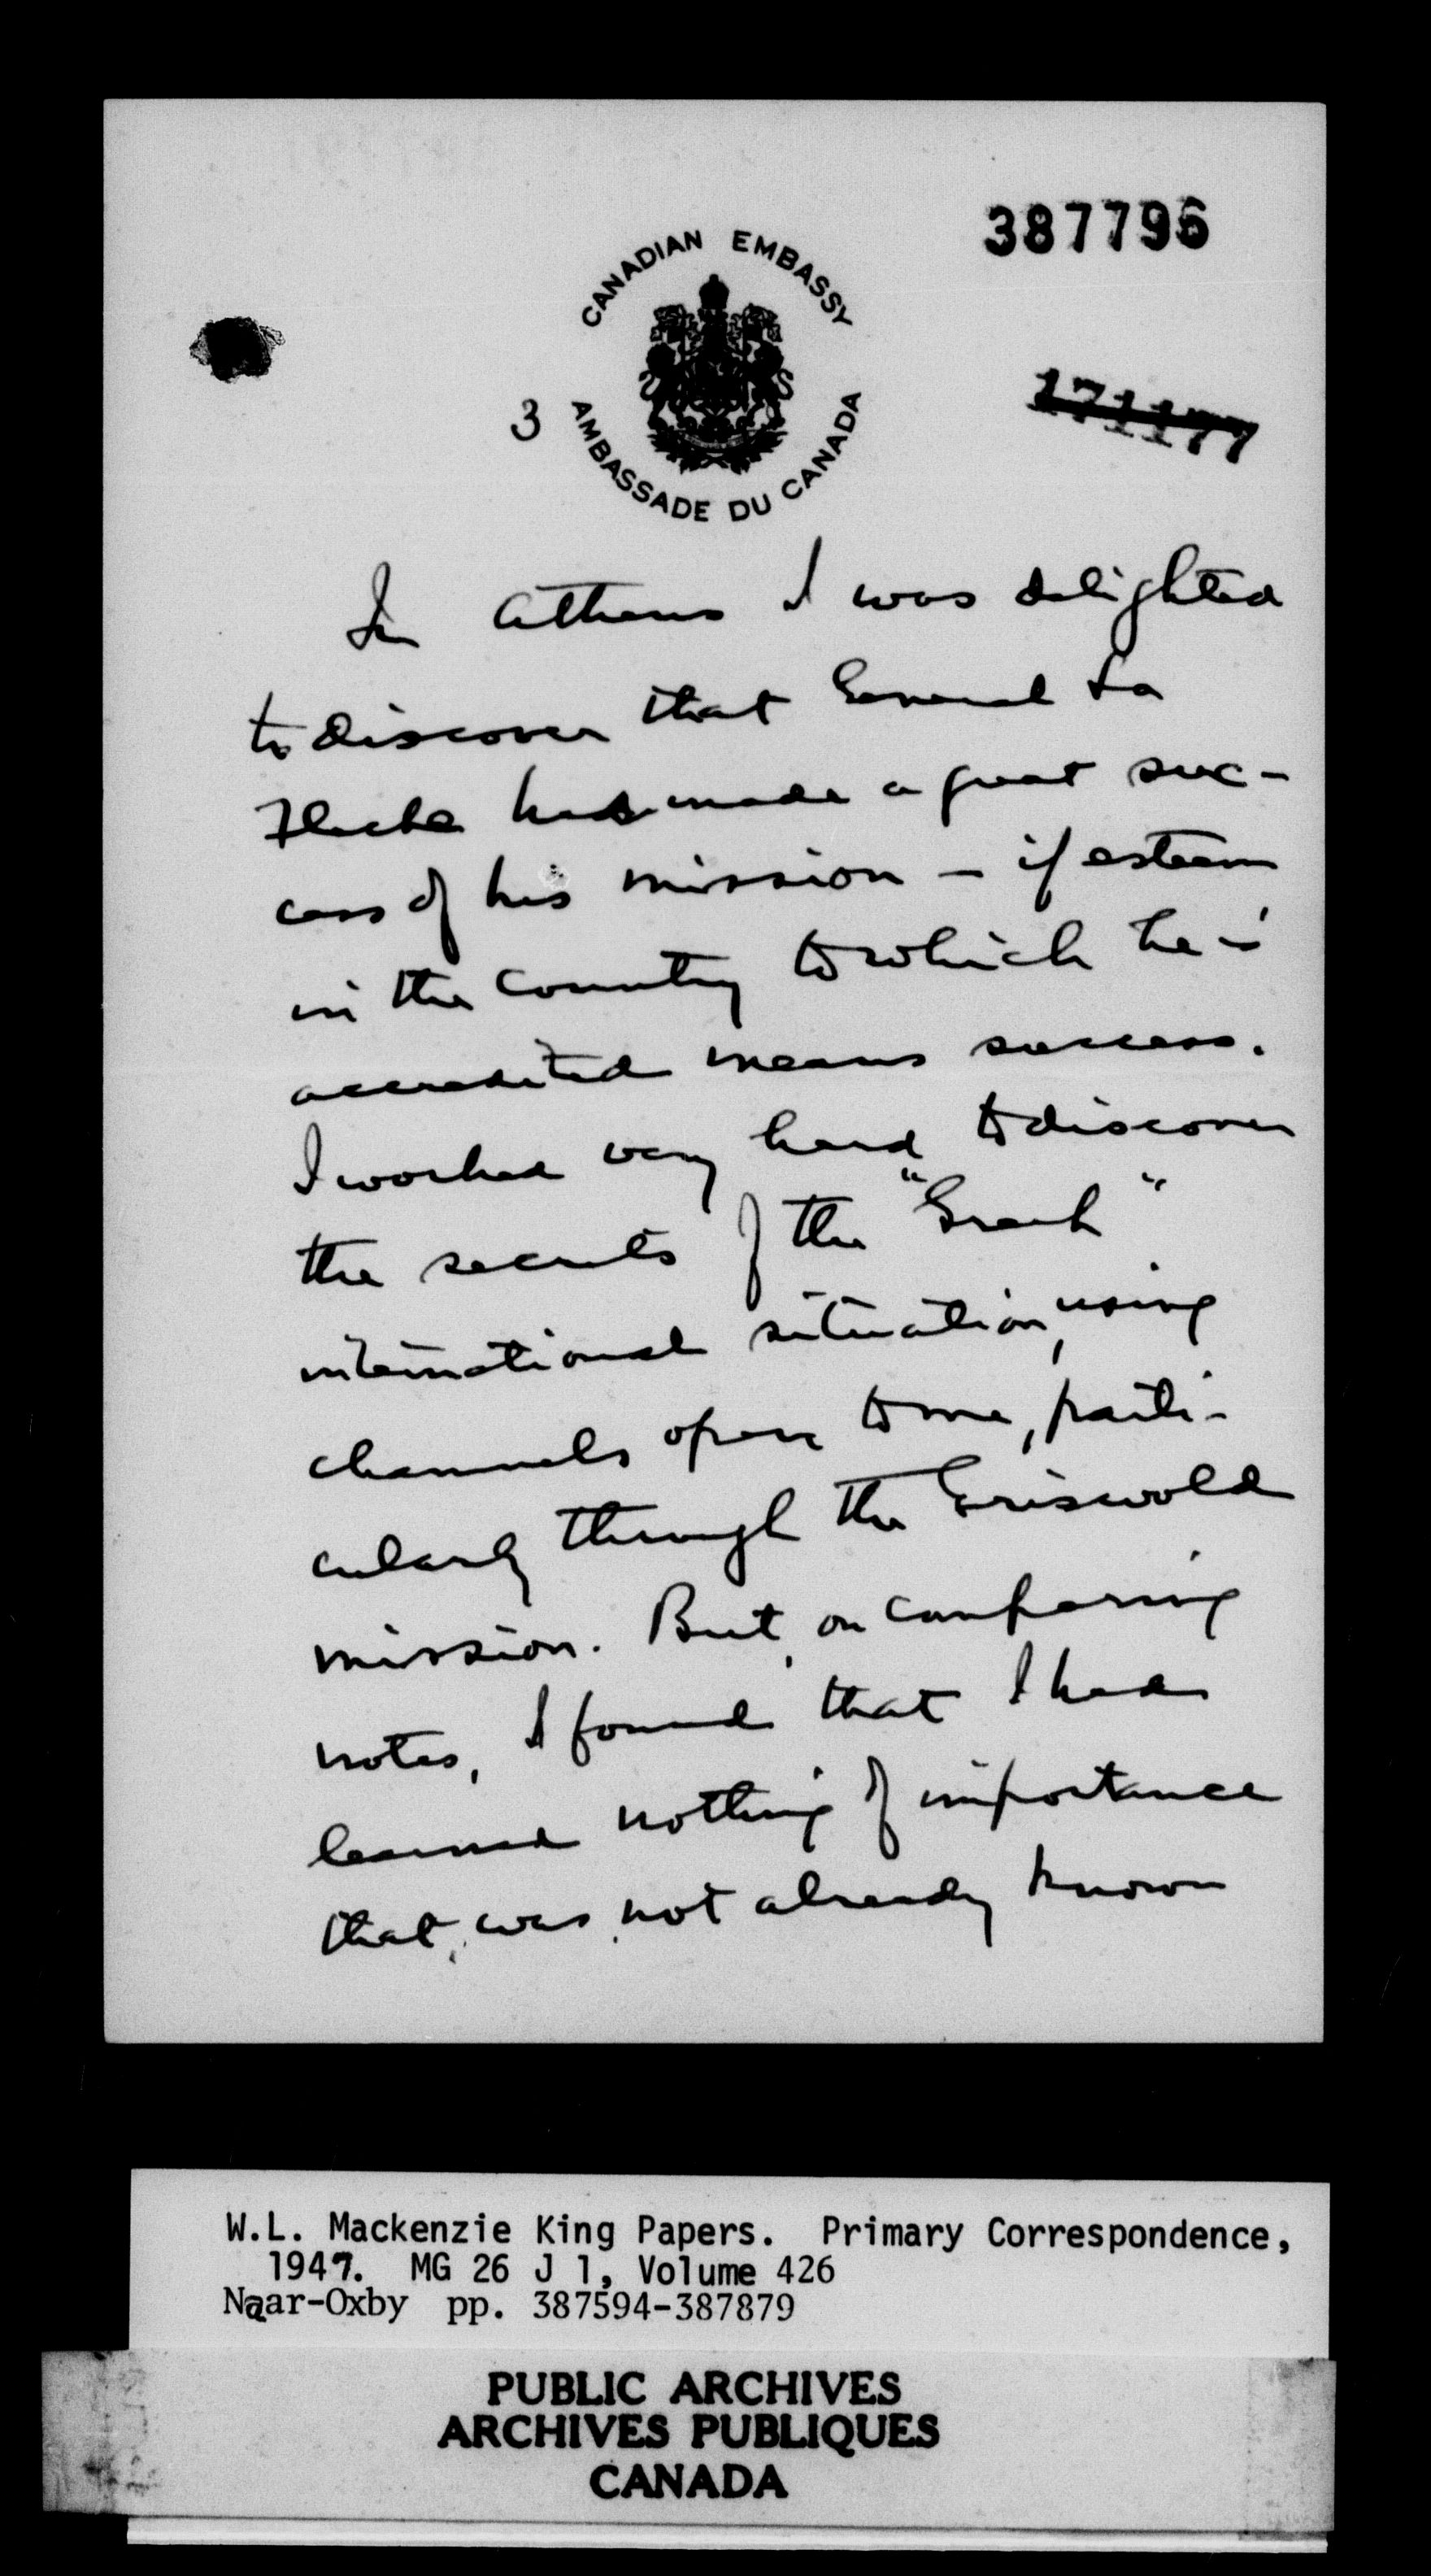 387796
CANADIAN EMBASSY
AMBASSADE DU CANADA
3
171177
In Athens I was delighted
to discover that General La
Fleche has made a great suc-
cess of his mission - if esteem
in the country to which he is
accredited means success.
I worked very hard to discover
the secrets of the "Greek"
international situation, using
channels open to me, parti-
cularly through the Griswold
mission. But, on comparing
notes, I found that I had
learned nothing of importance
that was not already known
W.L. Mackenzie King Papers. Primary Correspondence,
1947. MG 26 J 1, Volume 426
Naar-Oxby pp. 387594-387879
PUBLIC ARCHIVES
ARCHIVES PUBLIQUES
CANADA